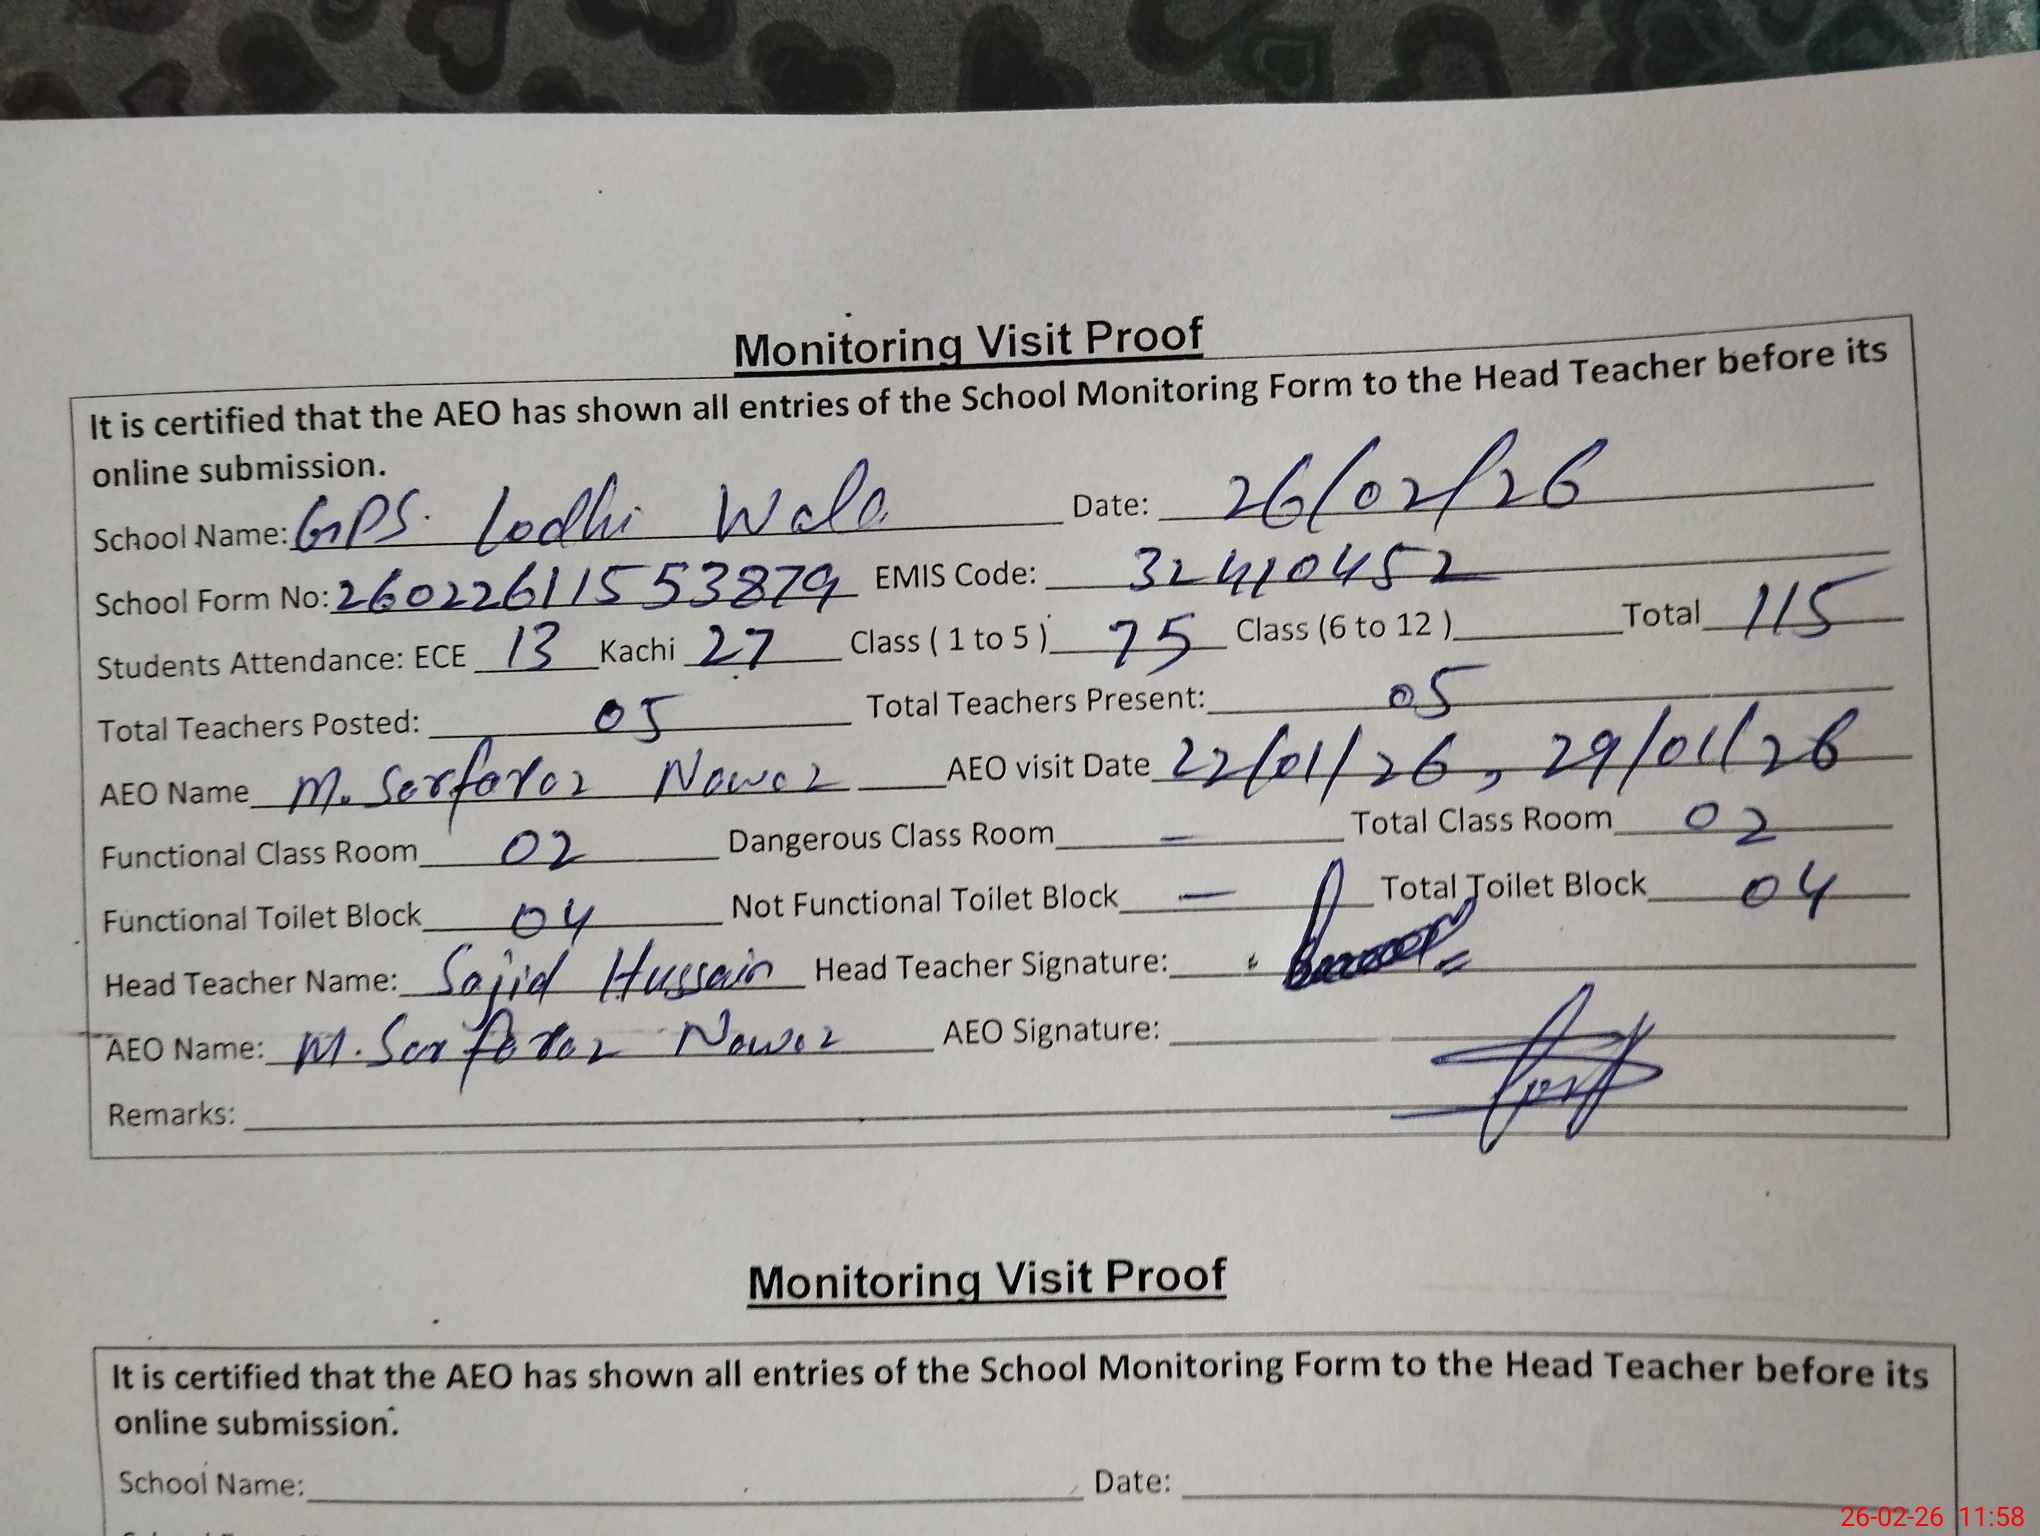 Monitoring Visit Proof
It is certified that the AEO has shown all entries of the School Monitoring Form to the Head Teacher before its
online submission.
School Name: GPS. Lodhi Wala Date: 26/02/26
School Form No: 26022611553879 EMIS Code: 32410452
Students Attendance: ECE 13 Kachi 27 Class ( 1 to 5 ) 75 Class (6 to 12 ) Total 115
Total Teachers Posted: 05 Total Teachers Present: 05
AEO Name M. Sarfaraz Nawaz AEO visit Date 22/01/26, 29/01/26
Functional Class Room 02 Dangerous Class Room - Total Class Room 02
Functional Toilet Block 04 Not Functional Toilet Block - Total Toilet Block 04
Head Teacher Name: Sajid Hussain Head Teacher Signature:
AEO Name: M. Sarfaraz Nawaz AEO Signature:
Remarks:
Monitoring Visit Proof
It is certified that the AEO has shown all entries of the School Monitoring Form to the Head Teacher before its
online submission.
School Name: Date:
26-02-26 11:58